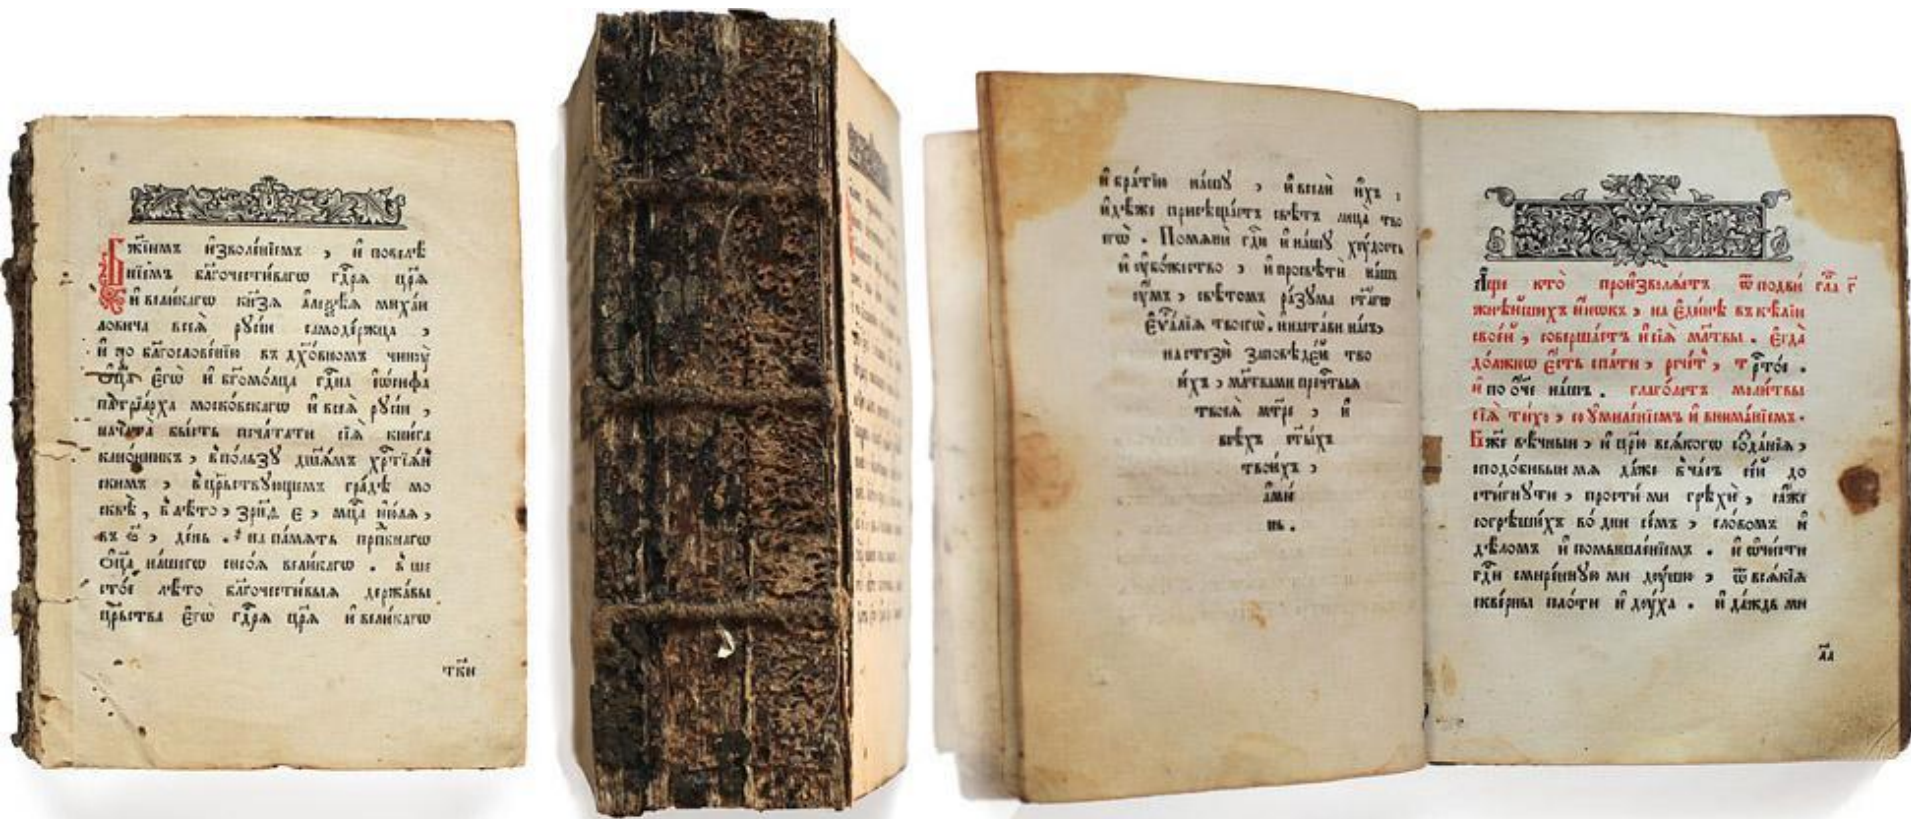 Бж҃їимъ и҆зволе́нїемъ , и҆ повелѣ
нїемъ бл҃гочести́вагѡ гдⷭ҇рѧ цр҃ѧ
и҆ вели́кагѡ кн҃зѧ а҆леѯѣ́ѧ миха́и
ловича всеѧ̀ рꙋсі́и самоде́ржца ,
и҆ по бл҃гословенїю въ дх҃о́вномъ чинꙋ̀
ѻ҆ц҃а̀ є҆гѡ̀ и҆ бг҃омо́лца гдⷭ҇на і҆ѡ́сифа
патрїа́рха моско́вскагѡ и҆ всеѧ̀ рꙋсі́и ,
нача́та бы́сть печа́тати сїѧ̀ кни́га
кано́нникъ , в̾ по́льзꙋ дш҃а́мъ хрⷭ҇тїѧ́н
скимъ , в̾ црⷭ҇твꙋющемъ гра́дѣ мо
сквѣ̀ , в̾ лѣ́то , ҂зрн҃д є҃ , мцⷭ҇а ию́лѧ ,
въ ѿ , де́нь . на па́мѧть прпⷣбнагѡ
ѻ҆ц҃а̀ на́шегѡ сисо́ѧ вели́кагѡ . в̾ ше
сто́е лѣ́то бл҃гочести́выѧ держа́вы
црⷭ҇тва є҆гѡ̀ гдⷭ҇рѧ цр҃ѧ и҆ вели́кагѡ
тк҃и
и҆ бра́тїю на́шꙋ , и҆ вселѝ и҆̀хъ ,
и҆дѣ́же присѣща́етъ свѣ́тъ лица̀ тво
егѡ̀ . Помѧнѝ гдⷭ҇и и҆ на́шꙋ хꙋ́дость
и҆ ᲂу҆бо́жество , и҆ просвѣтѝ на́шъ
ᲂу҆́мъ , свѣ́томъ ра́зꙋма ст҃а́гѡ
є҆ѵⷢ҇а́лїѧ твоегѡ̀ . и҆ наста́ви на́съ ,
на стезю̀ за́повѣдей тво
и́хъ , мл҃твами пречⷭ҇тыѧ
твоеѧ̀ мт҃ре , и҆
всѣ́хъ ст҃ы́хъ
твои́хъ ,
а҆ми́
нь .
А҆́ще кто̀ произволѧ́етъ ѿ подви гла г҃
жнѣ́йшихъ и҆́нокъ , на є҆ди́нѣ въ ке́лїи
свое́й , соверша́етъ и҆ сїѧ̀ мл҃твы . Е҆гда̀
до́лжно є҆́сть спа́ти , рче́тъ , трⷭ҇то́е .
и҆ по ѻ҆́ч҃е на́шъ . глаго́летъ моли́твы
сїѧ̀ ти́хо , со ᲂу҆миле́нїемъ и҆ внима́нїемъ .
Бж҃е вѣ́чныи , и҆ цр҃ю̀ всѧ́когѡ созда́нїѧ ,
сподо́бивыи мѧ да́же в̾ ча́съ се́й до
сти́гнꙋти , прости́ ми грѣхѝ , ꙗ҆̀же
согрѣши́хъ во днѝ се́мъ , сло́вомъ и҆
дѣ́ломъ и҆ помышле́нїемъ . и҆ ѡ҆чи́сти
гдⷭ҇и смире́ннꙋю ми дꙋ́шꙋ , ѿ всѧ́кїѧ
скве́рны пло́ти и҆ дꙋ́ха . и҆ да́ждь ми
л҃д